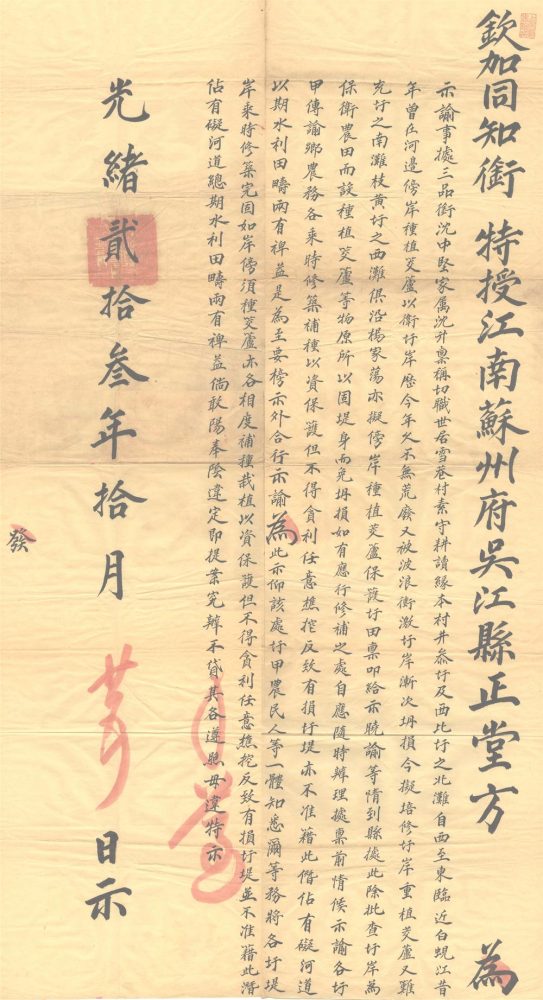 欽加同知銜 特授江南蘇州府吳江縣正堂方 為
示諭事據三品銜沈中堅家属沈升禀稱切職世居雪巷村素守耕讀緣本村井叅圩及西北圩之北灘自西至東臨近白蜆江昔
年曾在河邊傍岸種植茭蘆以衛圩岸歷今年久不無荒廢又被波浪衝激圩岸漸次坍損今擬培修圩岸重植茭蘆又難
圩之南灘枝黄圩之西灘俱沿楊家蕩亦擬傍岸種植茭蘆保護圩田禀叩給示曉諭等情到縣據此除批查圩岸為
保衛農田而設種植茭蘆等物原所以固堤身而免坍損如有應行修補之處自應随時辦理據禀前情候示諭各圩
甲傳諭鄉農務各乘時修築補種以資保護但不得貪利任意樵挖反致有損圩堤亦不准藉此僭佔有礙河道
以期水利田疇兩有裨益是為至要榜示外合行示諭為此示仰該處圩甲農民人等一體知悉爾等務將各圩堤
岸乘時修築完固如岸傍須種茭蘆亦各相度補種栽植以資保護但不得貪利任意樵挖反致有損圩堤並不准藉此潛
佔有礙河道總期水利田疇兩有裨益倘敢陽奉陰違定即提案究辦不貸其各遵照毋違特示
光緒貳拾叁年拾月 日示
發